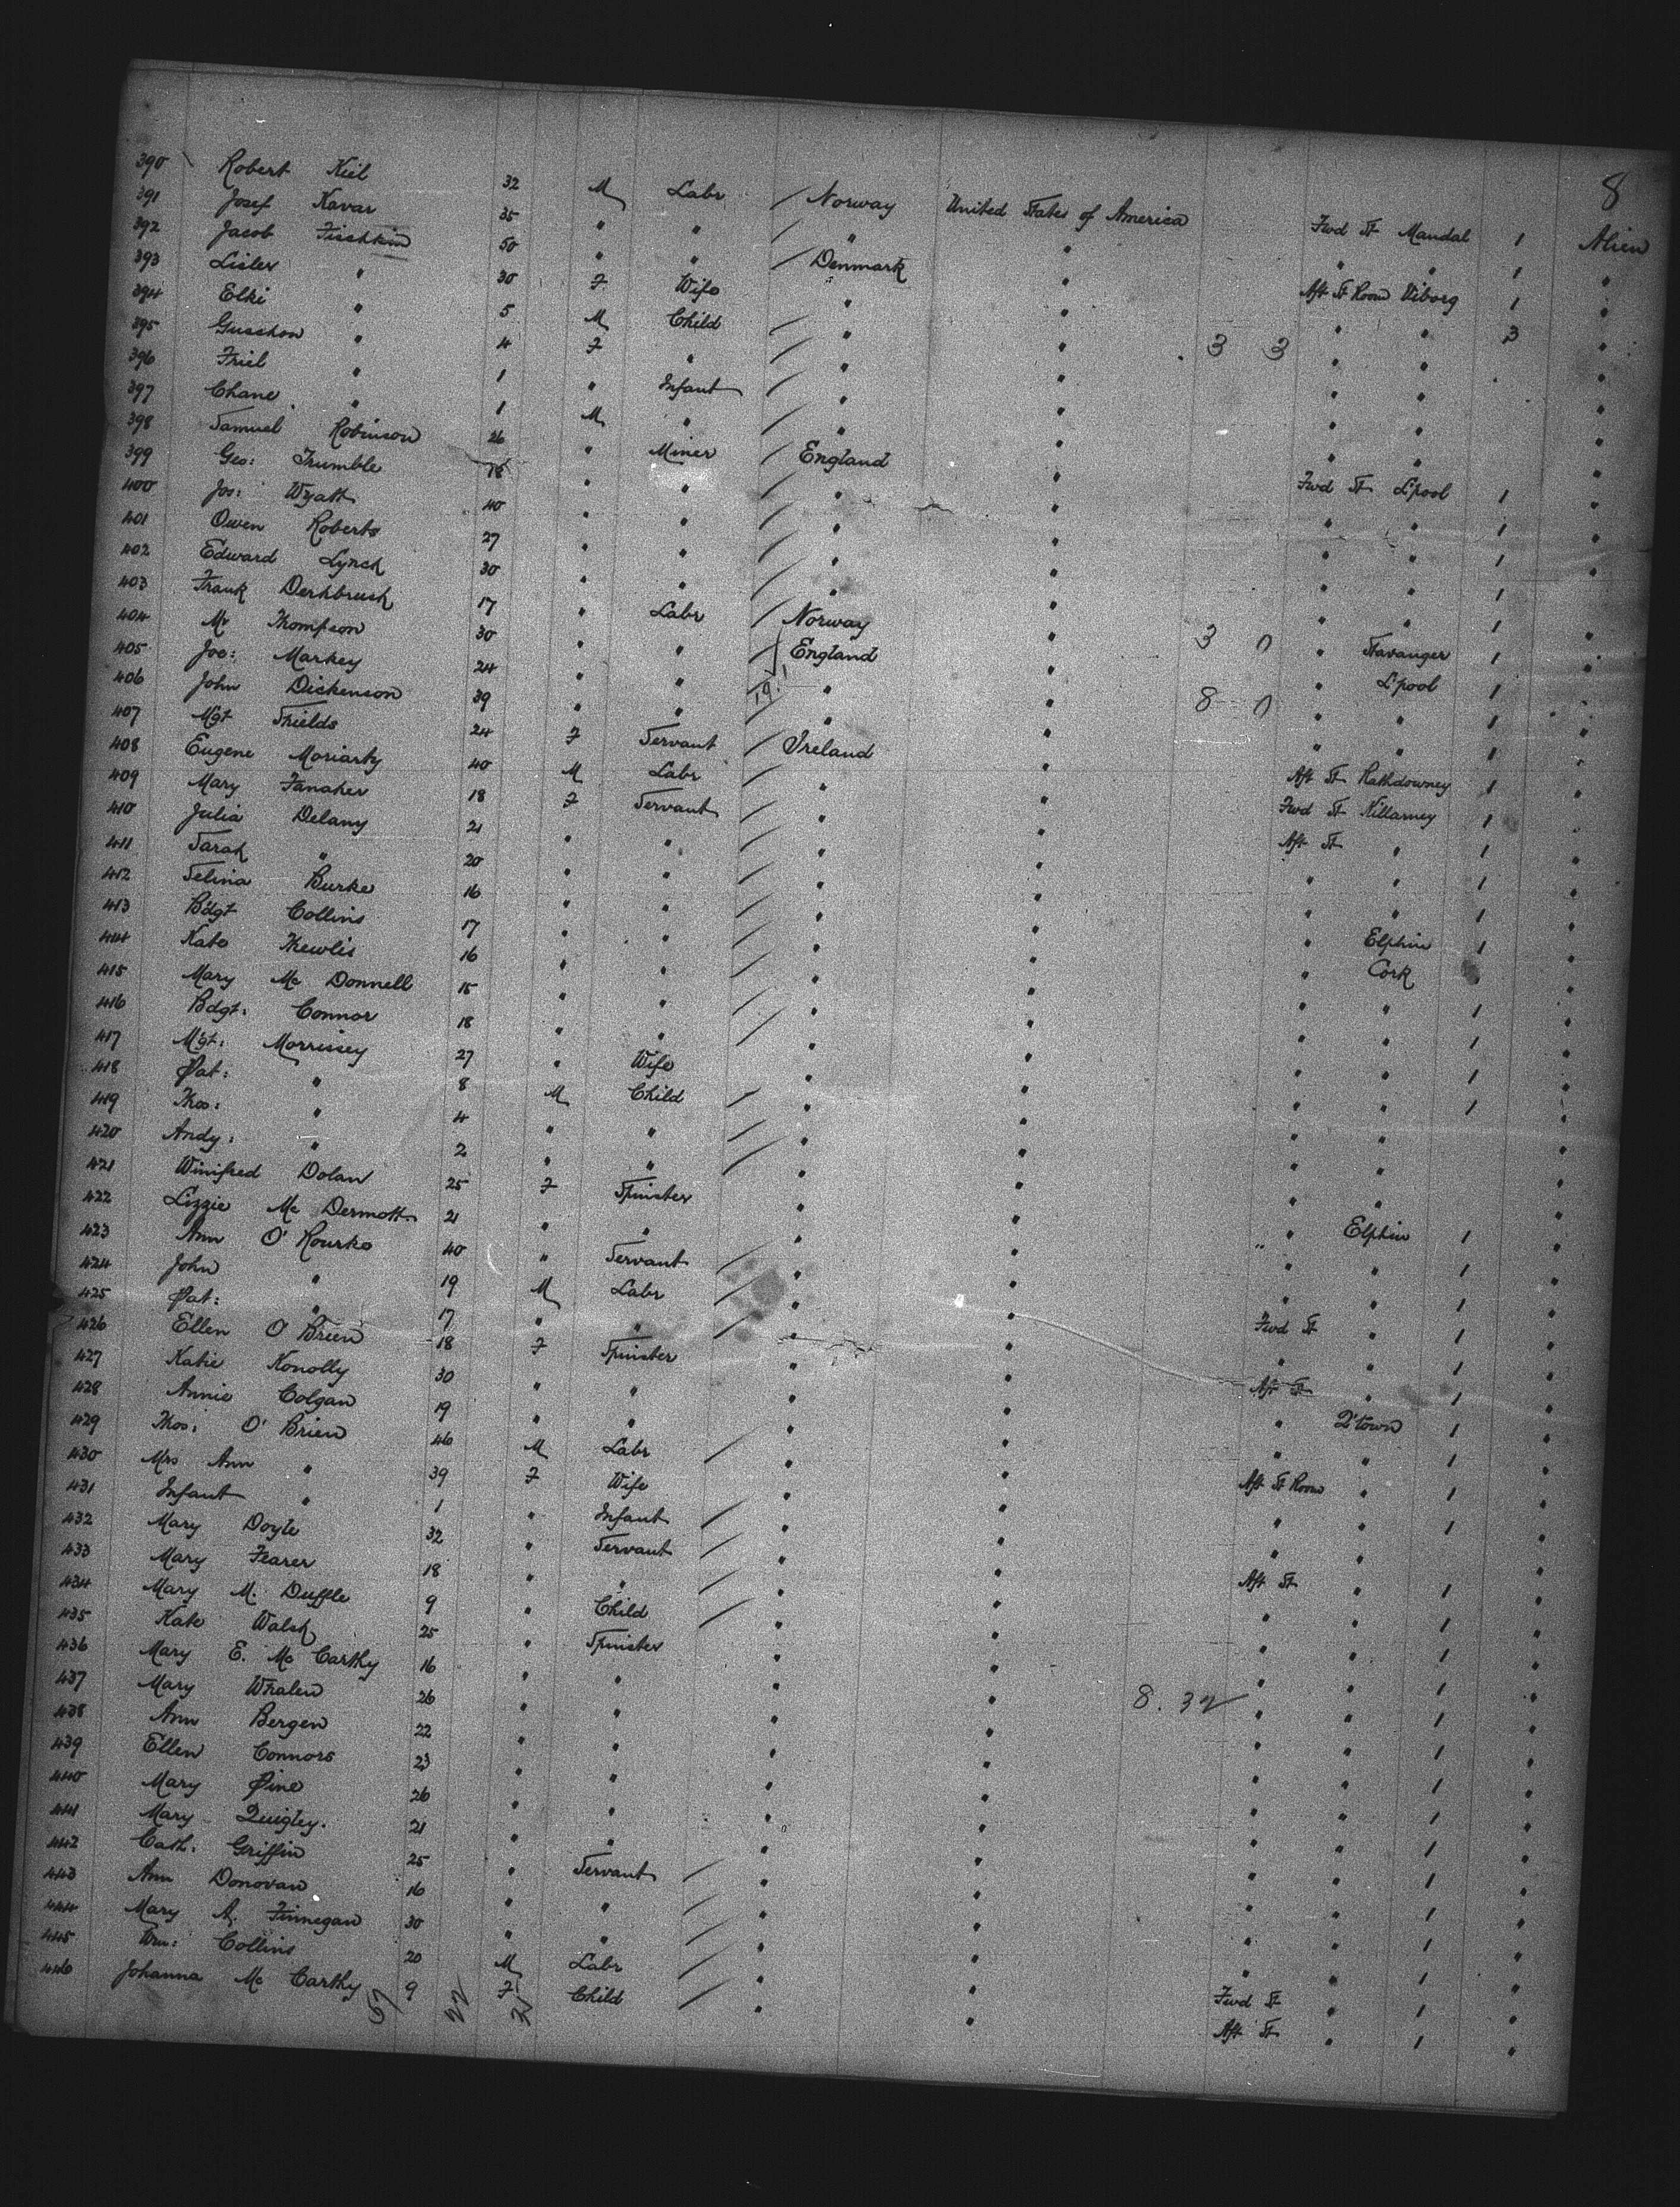 8
390 Robert Kiel 32 M Labr / Norway United States of America Fwd St Mandal 1 Alien
391 Josef Kavar 35 " " / " " " " 1 "
392 Jacob Fischkin 50 " " / Denmark " Aft St Room Viborg 1 "
393 Lisler " 30 F Wife " " " " 3 "
394 Elki " 5 M Child / " " 3 3 " " "
395 Gusshow " 4 F " / " " " " "
396 Friel " 1 " Infant / " " " " "
397 Chane " 1 M " / " " " " "
398 Samuel Robinson 26 " Miner / England " Fwd St L'pool 1 "
399 Geo: Trumble 18 " " / " " " " 1 "
400 Jos: Wyatt 40 " " / " " " " 1 "
401 Owen Roberts 27 " " / " " " " 1 "
402 Edward Lynch 30 " " / " " " " 1 "
403 Frank Derhbrush 17 " Labr / Norway " 3 0 " Stavanger 1 "
404 Mr Thompson 30 " " / England " " L'pool 1 "
405 Jos: Markey 24 " " / " " 8 0 " " 1 "
406 John Dickenson 39 " " / " " " " 1 "
407 Mgt Shields 24 F Servant / Ireland " Aft St Rathdowney 1 "
408 Eugene Moriarty 40 M Labr / " " Fwd St Killarney 1 "
409 Mary Fanaher 18 F Servant / " " Aft St " 1 "
410 Julia Delany 21 " " / " " " " 1 "
411 Sarah " 20 " " / " " " " 1 "
412 Selina Burke 16 " " / " " " Elphin 1 "
413 Bdgt Collins 17 " " / " " " Cork "
414 Kate Thewlis 16 " " / " " " " 1 "
415 Mary Mc Donnell 15 " " / " " " " 1 "
416 Bdgt: Connor 18 " " / " " " " 1 "
417 Mgt: Morrissey 27 " Wife " " " " 1 "
418 Pat: " 8 M Child / " " " " "
419 Thos: " 4 " " / " " " " "
420 Andy: " 2 " " / " " " " "
421 Winifred Dolan 25 F Spinster " " " Elphin 1 "
422 Lizzie Mc Dermott 21 " " " " " " 1 "
423 Ann O'Rourke 40 " Servant / " " " " 1 "
424 John " 19 M Labr / " " Fwd St " 1 "
425 Pat: " 17 " " / " " " " 1 "
426 Ellen O'Brien 18 F Spinster " " Aft St " 1 "
427 Katie Konolly 30 " " " " " Q'town 1 "
428 Annie Colgan 19 " " " " " " 1 "
429 Thos: O'Brien 46 M Labr / " " Aft St Room " 1 "
430 Mrs Ann " 39 F Wife " " " " 1 "
431 Infant " 1 " Infant / " " " " "
432 Mary Doyle 32 " Servant / " " Aft St " 1 "
433 Mary Fearer 18 " " / " " " " 1 "
434 Mary M. Duffle 9 " Child / " " " " 1 "
435 Kate Walsh 25 " Spinster " " " " 1 "
436 Mary E. Mc Carthy 16 " " " " 8. 32 " " 1 "
437 Mary Whalen 26 " " " " " " 1 "
438 Ann Bergen 22 " " " " " " 1 "
439 Ellen Connors 23 " " " " " " 1 "
440 Mary Pine 26 " " " " " " 1 "
441 Mary Quigley. 21 " " " " " " 1 "
442 Cath: Griffin 25 " Servant / " " " " 1 "
443 Ann Donovan 16 " " / " " " " 1 "
444 Mary A. Finnegan 30 " " / " " " " 1 "
445 Wm: Collins 20 M Labr / " " Fwd St " 1 "
446 Johanna Mc Carthy 9 F Child / " " Aft St " 1 "